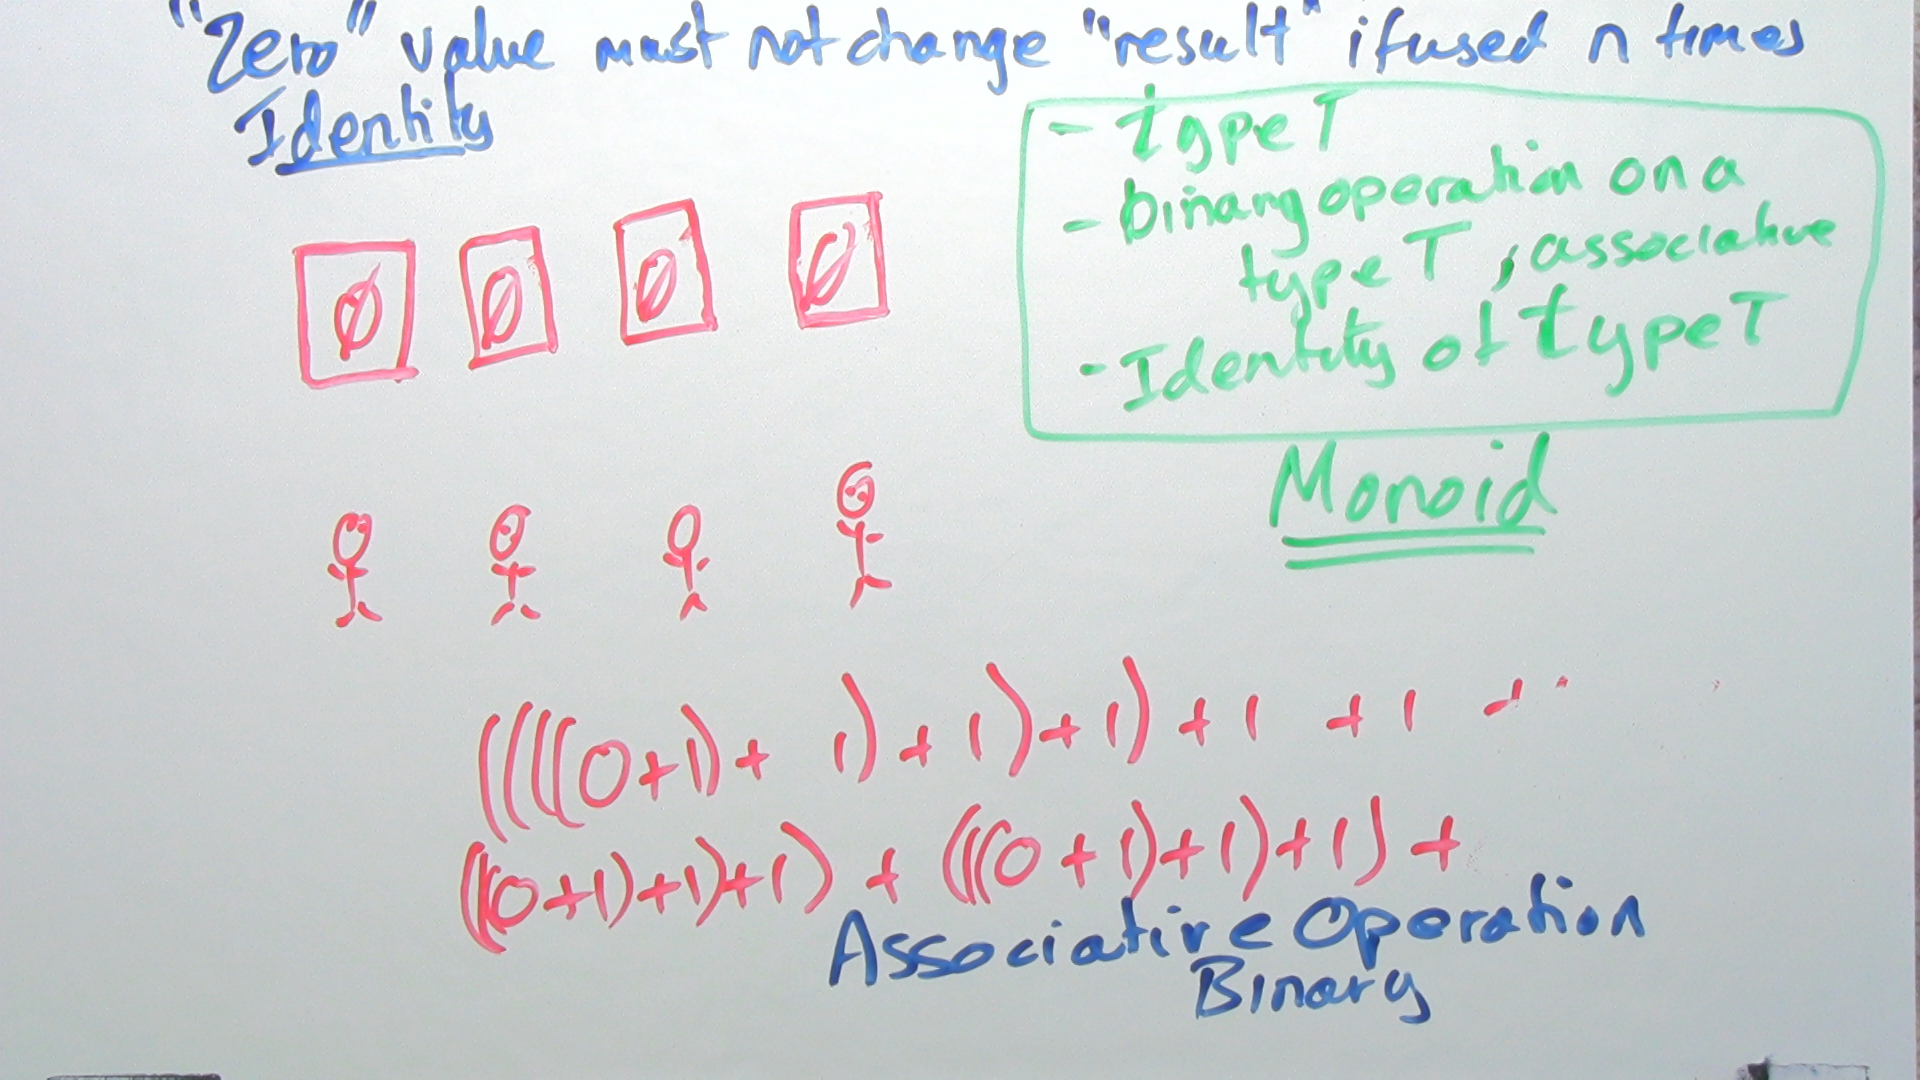 "Zero" value must not change "result" if used n times
Identity
- type T
- binary operation on a
type T, associative
- Identity of type T
Monoid
0 0 0 0
((((0+1)+ 1)+1)+1)+1 +1 +
(((0+1)+1)+1) + (((0+1)+1)+1) +
Associative Operation
Binary